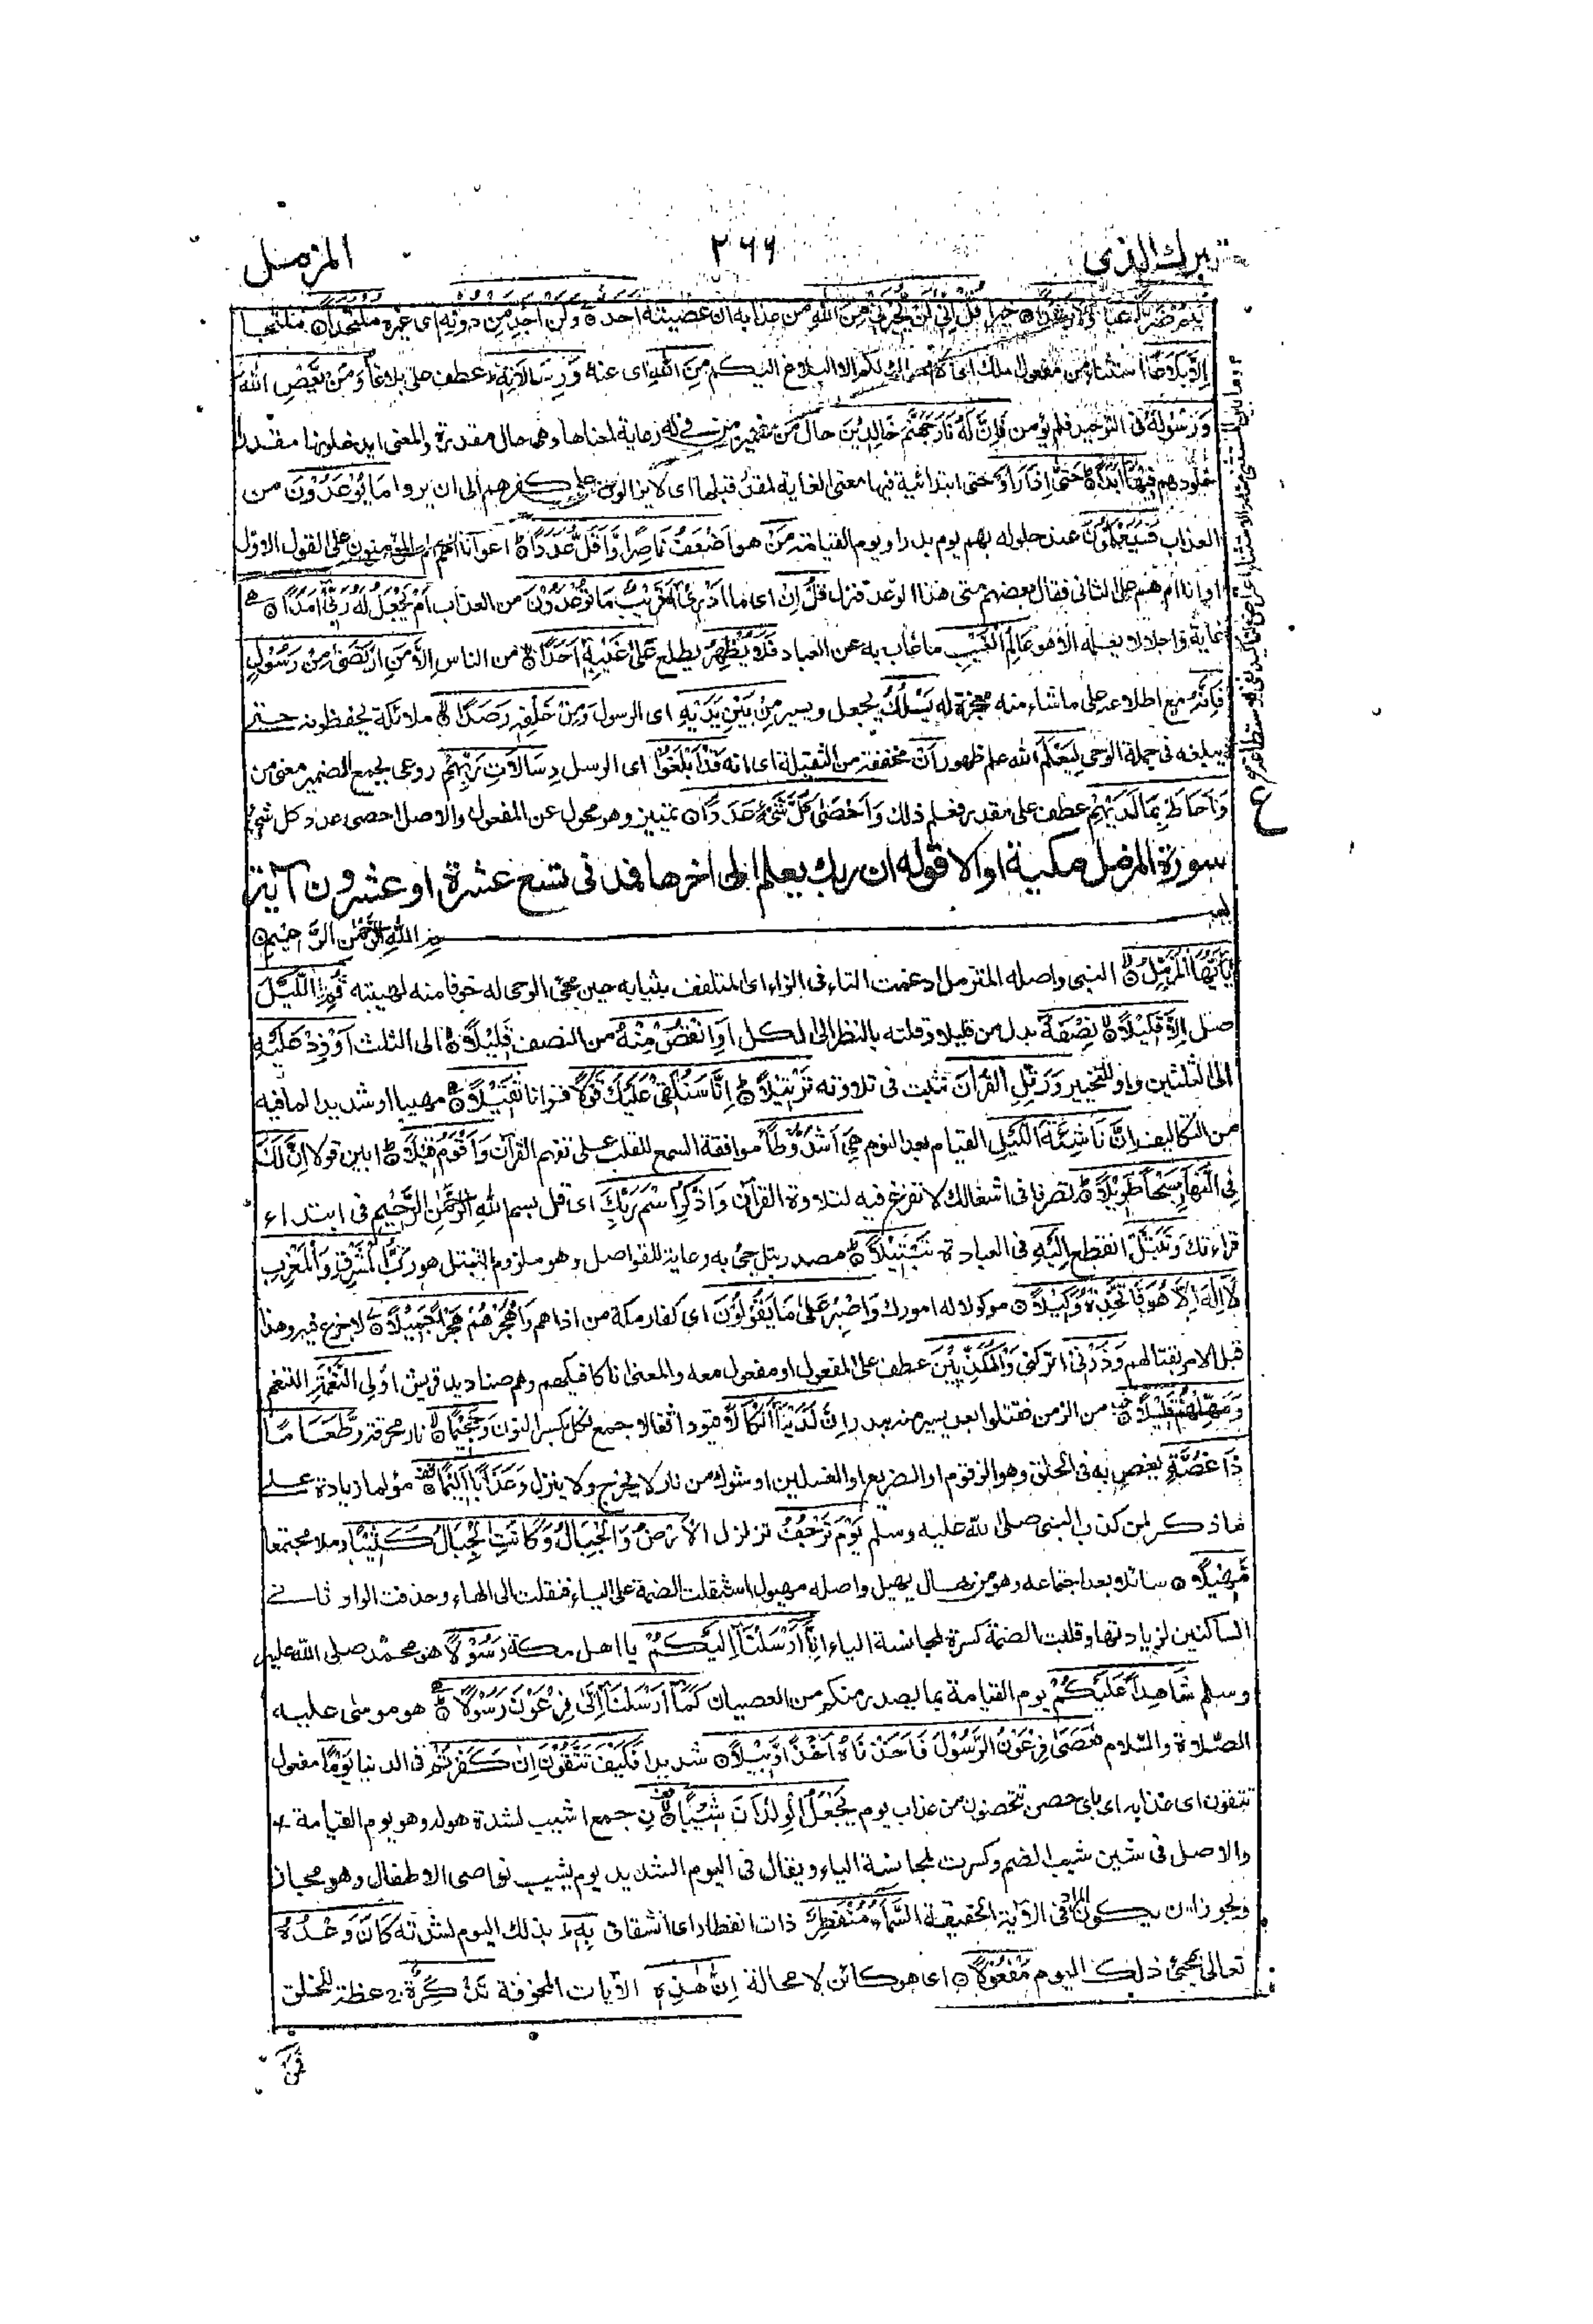 تبرك الذي
٢٦٦
المزمل
لكم ضرا غيا ولا رشدا خيرا قل اني لن يجيرني من الله من عذابه ان عصيته احد ولن اجد من دونه اى غيره ملتحدا ملتجا
الا بلاغا استثناء من مفعول املك اى لا املك لكم الا البلاغ اليكم من الله اى عنه ورسالاته عطف على بلاغا ومن يعص الله
ورسوله فى التوحيد فلم يؤمن فان له نار جهنم خالدين حال من ضمير من فى له رعاية لمعناها وهى حال مقدرة والمعنى يدخلونها مقدرا
خلودهم فيها ابدا حتى اذا راوا حتى ابتدائية فيها معنى الغاية لمقدر قبلها اى لا يزالون على كفرهم الى ان يروا ما يوعدون من
العذاب فسيعلمون عند حلوله بهم يوم بدر او يوم القيامة من هو اضعف ناصرا واقل عددا اعوانا اهم ام المؤمنون على القول الاول
او انا ام هم على الثانى فقال بعضهم متى هذا الوعد فنزل قل ان اى ما ادري اقريب ما توعدون من العذاب ام يجعل له ربي امدا
غاية واجلا لا يعلمه الا هو عالم الغيب ما غاب به عن العباد فلا يظهر يطلع على غيبه احدا من الناس الا من ارتضى من رسول
فانه مع اطلاعه على ما شاء منه معجزة له يسلك يجعل ويسير من بين يديه اى الرسول ومن خلفه رصدا ملائكة يحفظونه حتى
يبلغه فى جملة الوحى ليعلم الله علم ظهور ان مخففة من الثقيلة اى انه قد ابلغوا اى الرسل رسالات ربهم روعى بجمع الضمير معنى من
واحاط بما لديهم عطف على مقدر فعلم ذلك واحصى كل شيء عددا تمييز وهو محول عن المفعول والاصل احصى عدد كل شئ
ع
سورة المزمل مكية او الا قوله ان ربك يعلم الى اخرها فمدنى تسع عشرة او عشرون آية
بسم الله الرحمن الرحيم
يايها المزمل النبى واصله المتزمل ادغمت التاء فى الزاء اى المتلفف بثيابه حين مجئ الوحى له خوفا منه لهيبته قم الليل
صل الا قليلا نصفه بدل من قليلا وقلته بالنظر الى الكل او انقص منه من النصف قليلا الى الثلث او زد عليه
الى الثلثين واو للتخيير ورتل القران تثبت فى تلاوته ترتيلا انا سنلقي عليك قولا قرانا ثقيلا مهيبا او شديدا لما فيه
من التكاليف ان ناشئة الليل القيام بعد النوم هي اشد وطا موافقة السمع للقلب على تفهم القرآن واقوم قيلا ابين قولا ان لك
في النهار سبحا طويلا تصرفا فى اشغالك لا تفرغ فيه لتلاوة القرآن واذكر اسم ربك اى قل بسم الله الرحمن الرحيم فى ابتداء
قراءتك وتبتل انقطع اليه فى العبادة تبتيلا مصدر بتل جئ به رعاية للفواصل وهو ملزوم التبتل هو رب المشرق والمغرب
لا اله الا هو فاتخذه وكيلا موكولا له امورك واصبر على ما يقولون اى كفار مكة من اذاهم واهجرهم هجرا جميلا لا جزع فيه وهذا
قبل الامر بقتالهم وذرني اتركنى والمكذبين عطف على المفعول او مفعول معه والمعنى انا كافيكهم وهم صناديد قريش اولي النعمة التنعم
ومهلهم قليلا من الزمن فقتلوا بعد يسير منه ببدر ان لدينا انكالا قيودا ثقالا جمع نكل بكسر النون وجحيما نار محرقة وطعاما
ذا غصة يغص به فى الحلق وهو الزقوم او الضريع او الغسلين او شوك من نار لا يخرج ولا ينزل وعذابا اليما مؤلما زيادة على
ما ذكر لمن كذب النبى صلى الله عليه وسلم يوم ترجف تزلزل الارض والجبال وكانت الجبال كثيبا رملا مجتمعا
مهيلا سائلا بعد اجتماعه وهو من هال يهيل واصله مهيول استثقلت الضمة على الياء فنقلت الى الهاء وحذفت الواو ثانى
الساكنين لزيادتها وقلبت الضمة كسرة لمجانسة الياء انا ارسلنا اليكم يا اهل مكة رسولا هو محمد صلى الله عليه
وسلم شاهدا عليكم يوم القيامة بما يصدر منكم من العصيان كما ارسلنا الى فرعون رسولا هو موسى عليه
الصلاة والسلام فعصى فرعون الرسول فاخذناه اخذا وبيلا شديدا فكيف تتقون ان كفرتم فى الدنيا يوما مفعول
تتقون اى عذابه اى باى حصن تتحصنون من عذاب يوم يجعل الولدان شيبا جمع اشيب لشدة هوله وهو يوم القيامة
والاصل فى شين شيب الضم وكسرت لمجانسة الياء ويقال فى اليوم الشديد يوم يشيب نواصى الاطفال وهو مجاز
ويجوز ان يكون المراد فى الآية الحقيقة السماء منفطر ذات انفطار اى انشقاق به بذلك اليوم لشدته كان وعده
تعالى بمجئ ذلك اليوم مفعولا اى هو كائن لا محالة ان هذه الآيات المخوفة تذكرة عظة للخلق
فمن